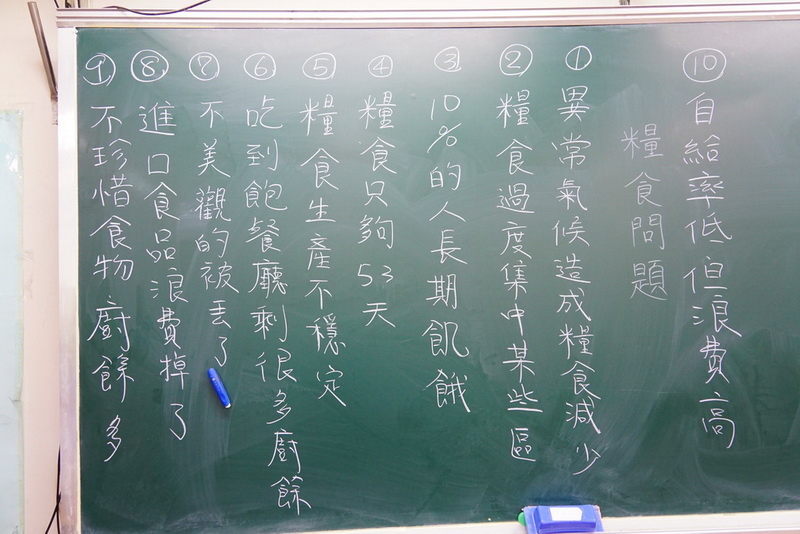 ⑩自給率低但浪費高
糧食問題
①異常氣候造成糧食減少
②糧食過度集中某些區
③10%的人長期飢餓
④糧食只夠53天
⑤糧食生產不穩定
⑥吃到飽餐廳剩很多廚餘
⑦不美觀的被丟了
⑧進口食品浪費掉了
⑨不珍惜食物廚餘多